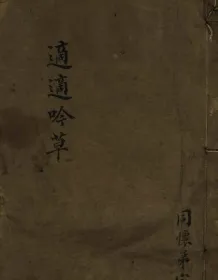 適適吟草
同懷弟